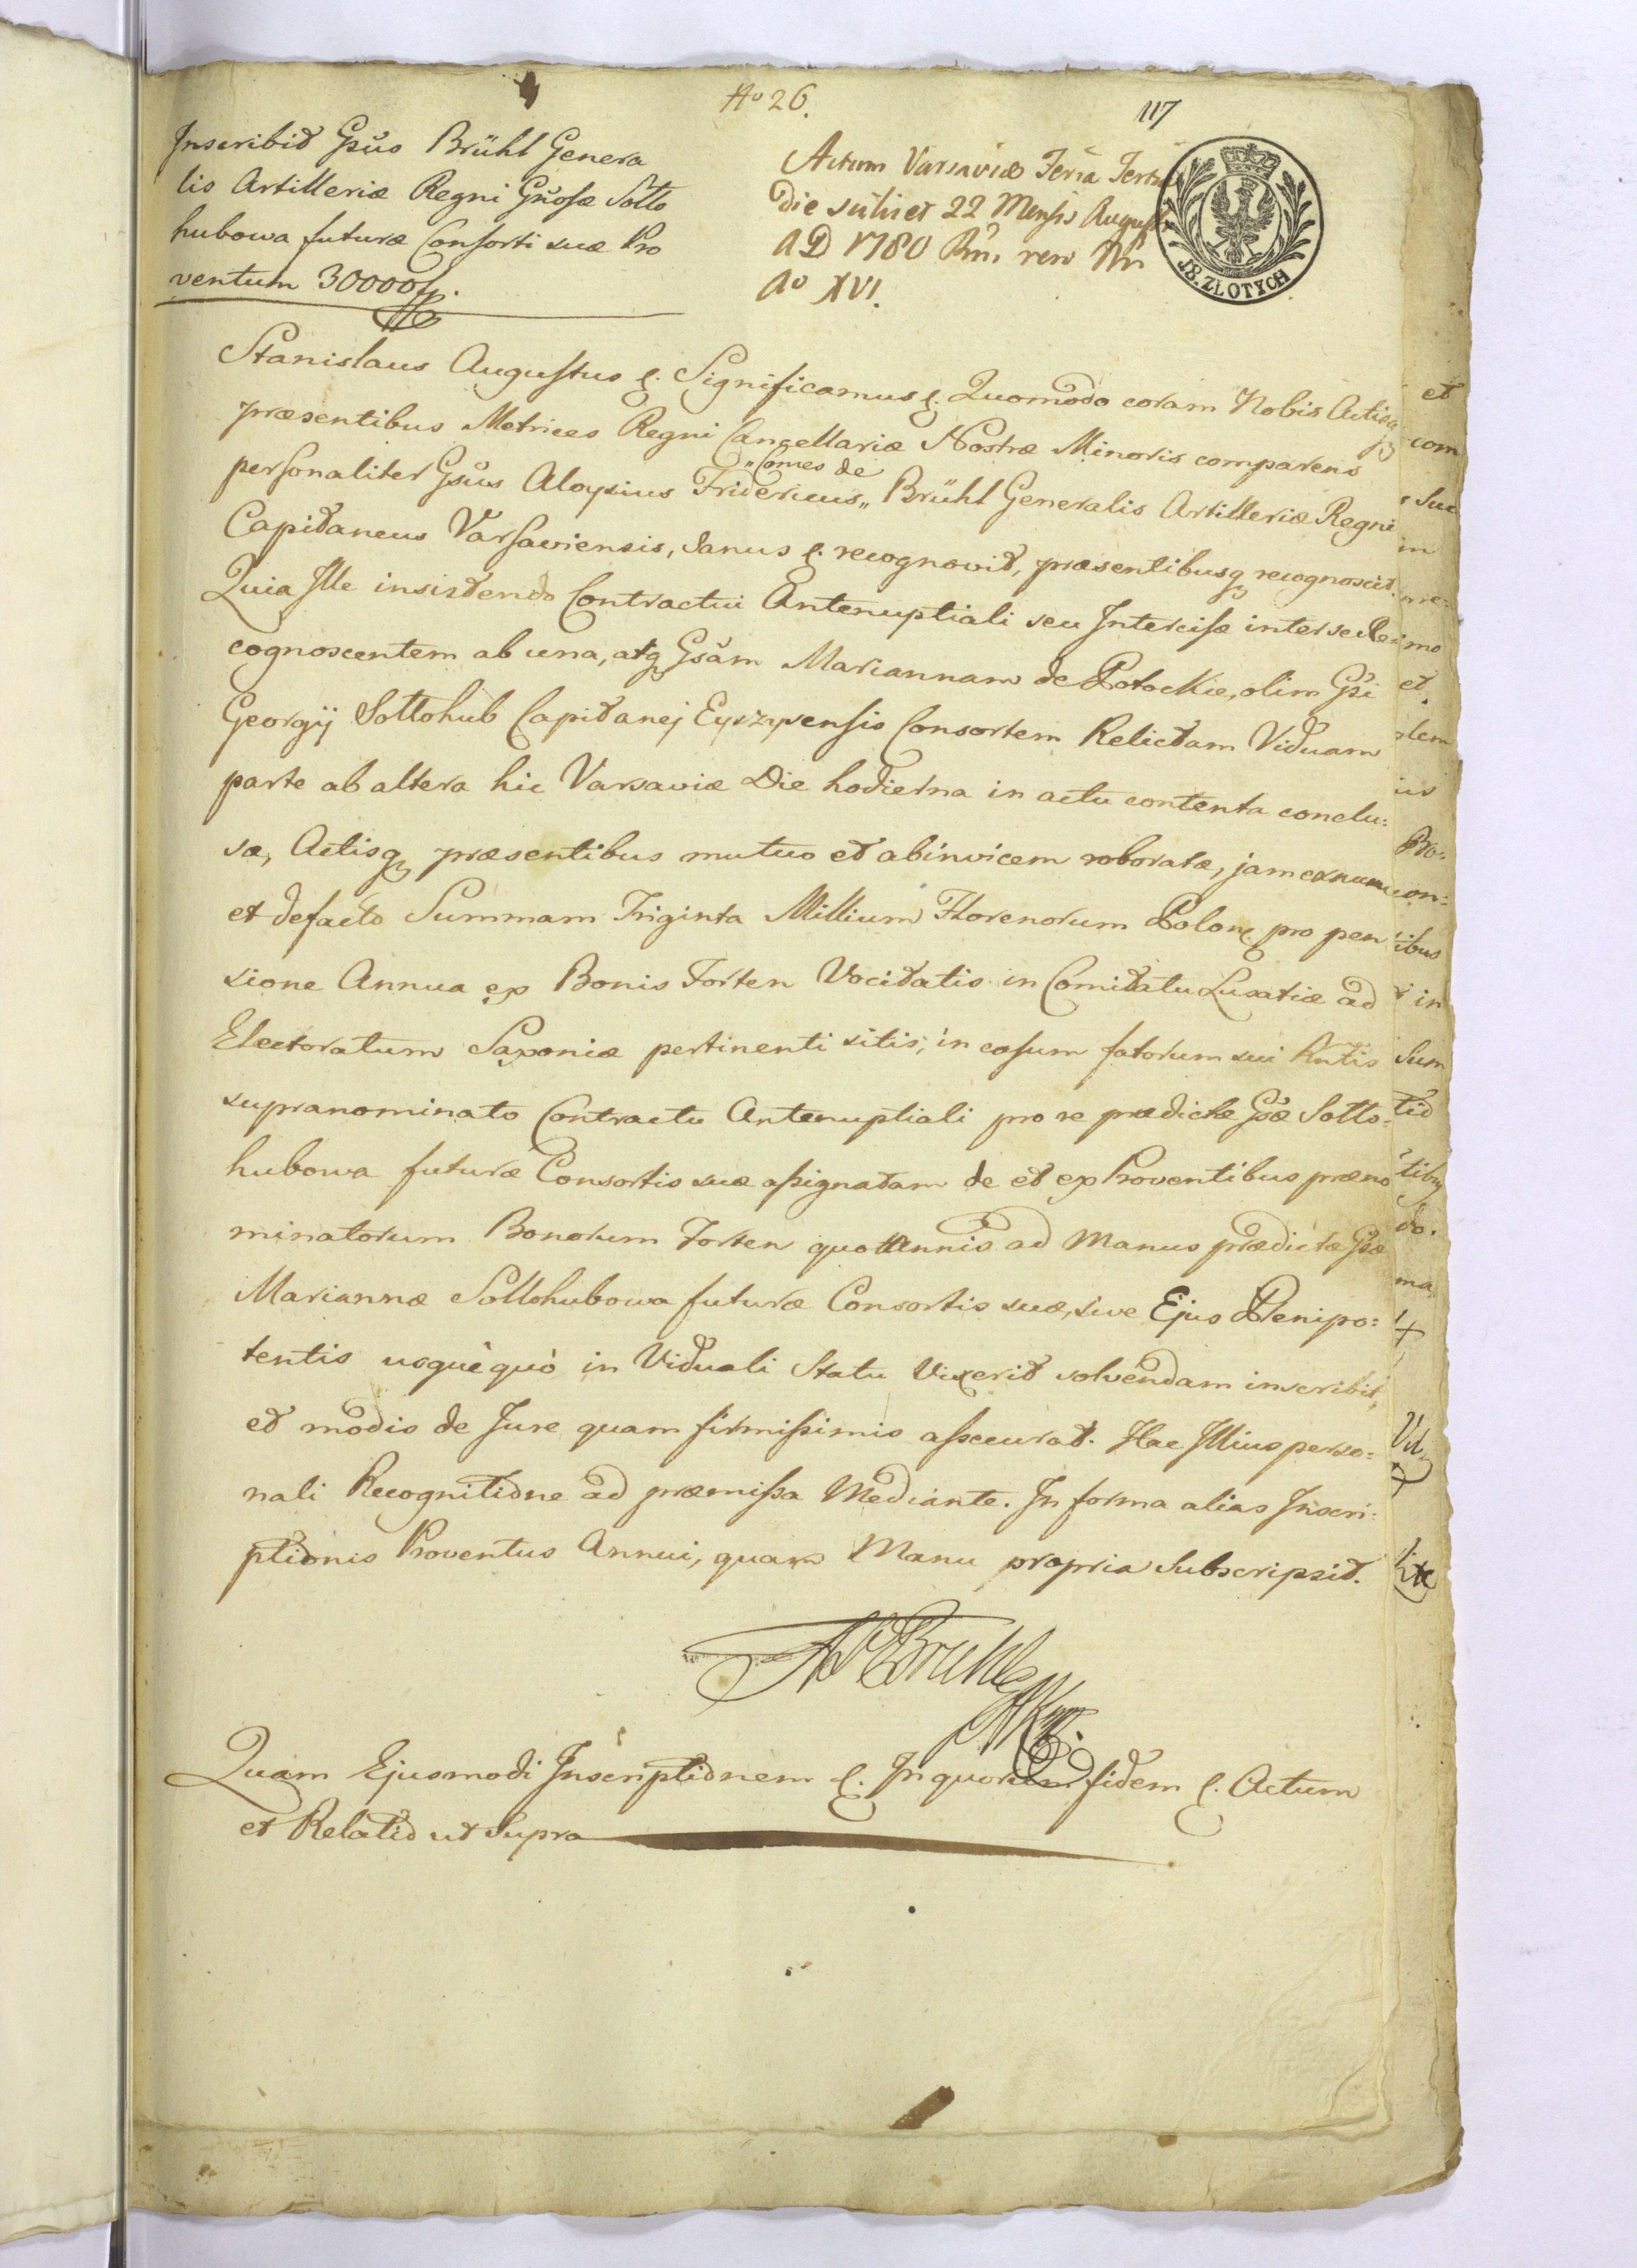 No 26.
117
Inscribit Gsus Brühl Genera
lis Artilleriæ Regni Gnosæ Sotto
hubowa futuræ Consorti suæ Pro
ventum 30000 f.
Actum Varsaviæ Feria Tertia
Die scilicet 22 Mensis Augusti
AD 1780 Rni. vero Nri
Ao XVI.
18. ZŁOTYCH
Stanislaus Augustus &. Significamus &. Quomodo coram Nobis Actisq
præsentibus Metrices Regni Cancellariæ Nostræ Minoris comparens
personaliter Gsus Aloysius Fridericus „ Brühl Generalis Artilleriæ Regni
„Comes de
Capitaneus Varsaviensis, sanus &. recognovit, præsentibusq recognoscit.
Quia Ille insistendo Contractui Antenuptiali seu Intercisæ inter se Re
cognoscentem ab una, atq Gsam Mariannam de Potockie, olim Gsi
Georgij Sollohub Capitanej Eyszyszensis Consortem Relictam Viduam
parte ab altera hic Varsaviæ Die hodierna in actu contenta conclu:
sæ, Actisq præsentibus mutuo et abinvicem roboratæ, jam exnunc
et defacto Summam Triginta Millium Florenorum Polon. pro pen
sione Annua ex Bonis Forten Vocitatis in Comitatu Lusatiæ ad
Electoratum Saxoniæ pertinenti sitis, in casum fatorum sui Rntis
supranominato Contractu Antenuptiali pro re prædictæ Gsæ Sollo:
hubowa futuræ Consortis suæ assignatam de et ex Proventibus præno
minatorum Bonorum Forten quottannis ad Manus prædictæ Gsæ
Mariannæ Sollohubowa futuræ Consortis suæ, sive Ejus Plenipo:
tentis usquèquò in Viduali Statu Vixerit solvendam inscribit,
et modis de Jure quam firmissimis assecurat. Hac Illius perso:
nali Recognitione ad præmissa Mediante. In forma alias Inscri:
ptionis Proventus Annui, quam Manu propria Subscripsit.
AF Bruhl
Quam Ejusmodi Inscriptionem &. In quorum fidem &. Actum
et Relatio ut Supra